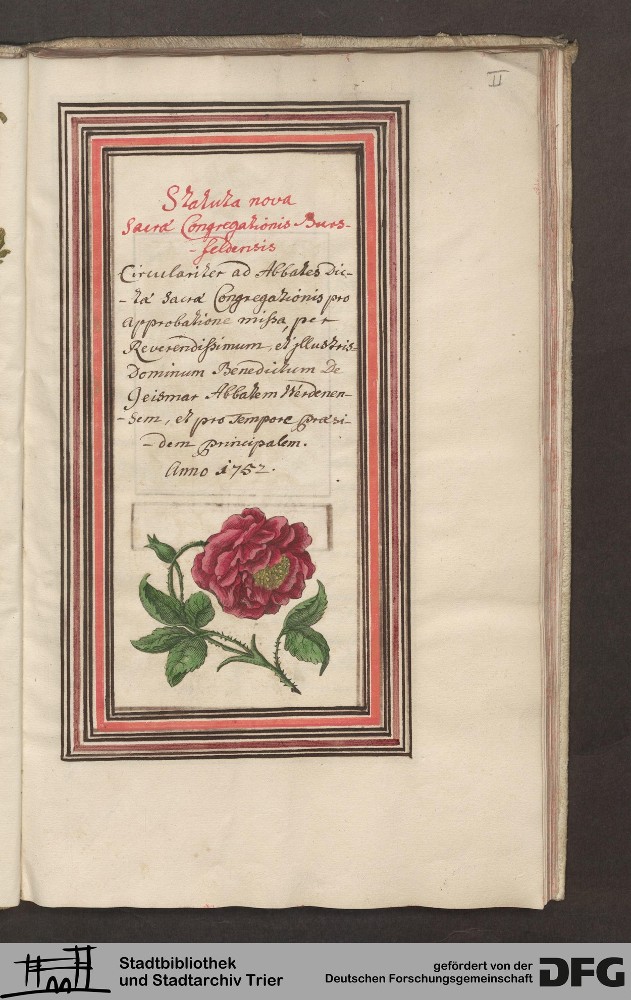 II
Statuta nova
Sacrae Congregationis Burs-
-feldensis
Circulariter ad Abbates Dic-
-tae Sacrae Congregationis pro
Approbatione missa, per
Reverendissimum, et jllustris-
Dominum Benedictum De
Geismar Abbatem Werdenen-
-Sem, et pro Tempore Praesi-
-dem principalem.
Anno 1752.
Stadtbibliothek
und Stadtarchiv Trier
gefördert von der
Deutschen Forschungsgemeinschaft
DFG